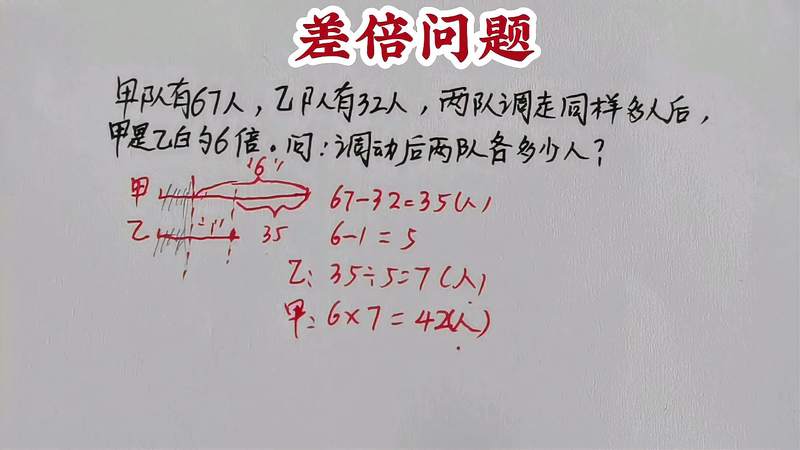 差倍问题
甲队有67人，乙队有32人，两队调走同样多人后，
甲是乙的6倍。问：调动后两队各多少人？
"6"
甲
67-32=35(人)
"1"
乙
35
6-1=5
乙：35÷5=7(人)
甲：6×7=42(人)